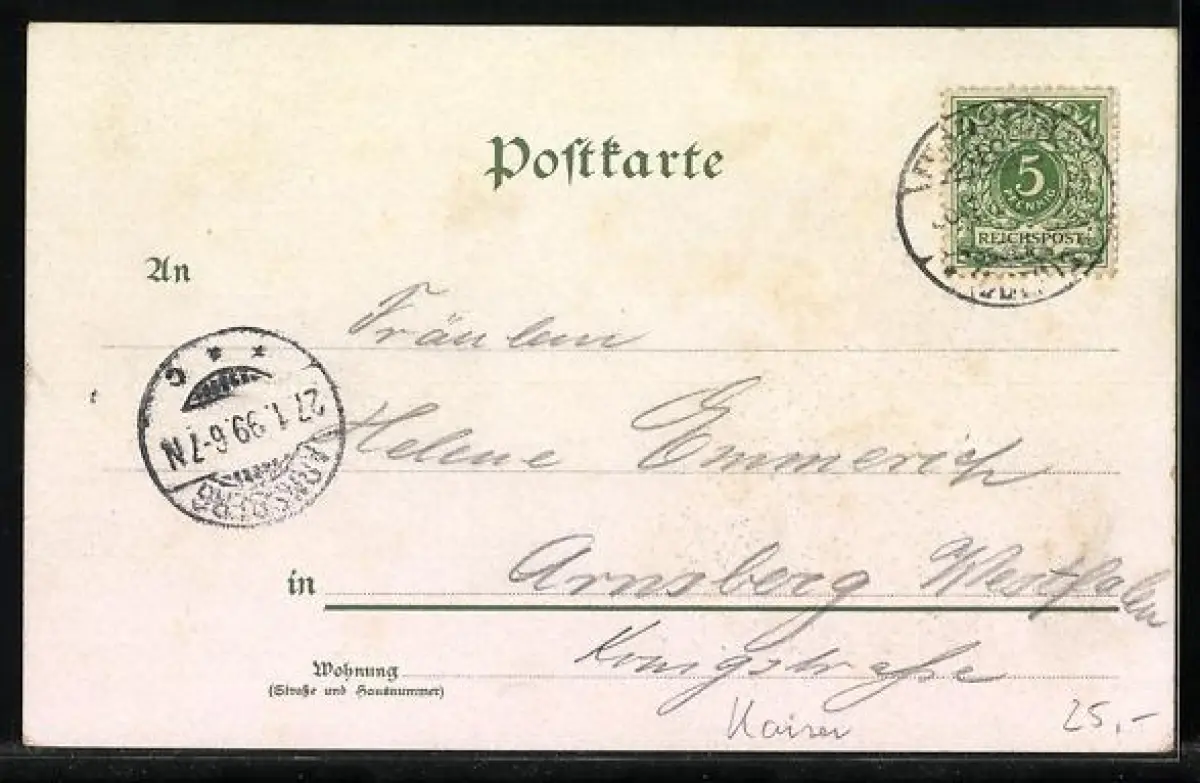 Postkarte
5
PFENNIG
REICHSPOST
An
Fräulein
Helene Emmerich
C
27.1.99.6-7N
ARNSBERG
in Arnsberg Westfalen
Wohnung Königstraße
(Straße und Hausnummer)
Kaiser
25,-